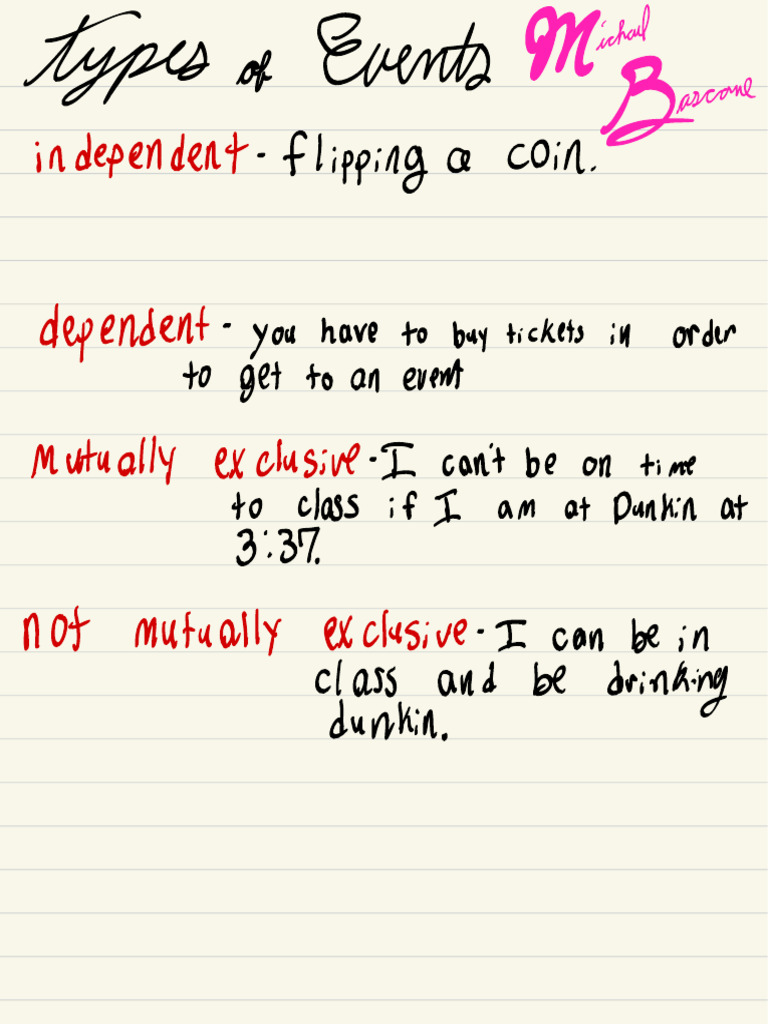 Types of Events
Michael
Bascone
independent - flipping a coin.
dependent - you have to buy tickets in order
to get to an event
Mutually exclusive - I can't be on time
to class if I am at Dunkin at
3:37.
not mutually exclusive - I can be in
class and be drinking
dunkin.